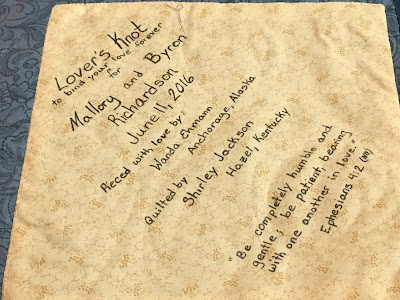 Lover's Knot
to bind your love forever
for
Mallory and Byron
Richardson
June 11, 2016
Pieced with love by
Wanda Ehmann
Anchorage, Alaska
Quilted by
Shirley Jackson
Hazel, Kentucky
"Be completely humble and
gentle; be patient, bearing
with one another in love."
Ephesians 4:2 (NIV)